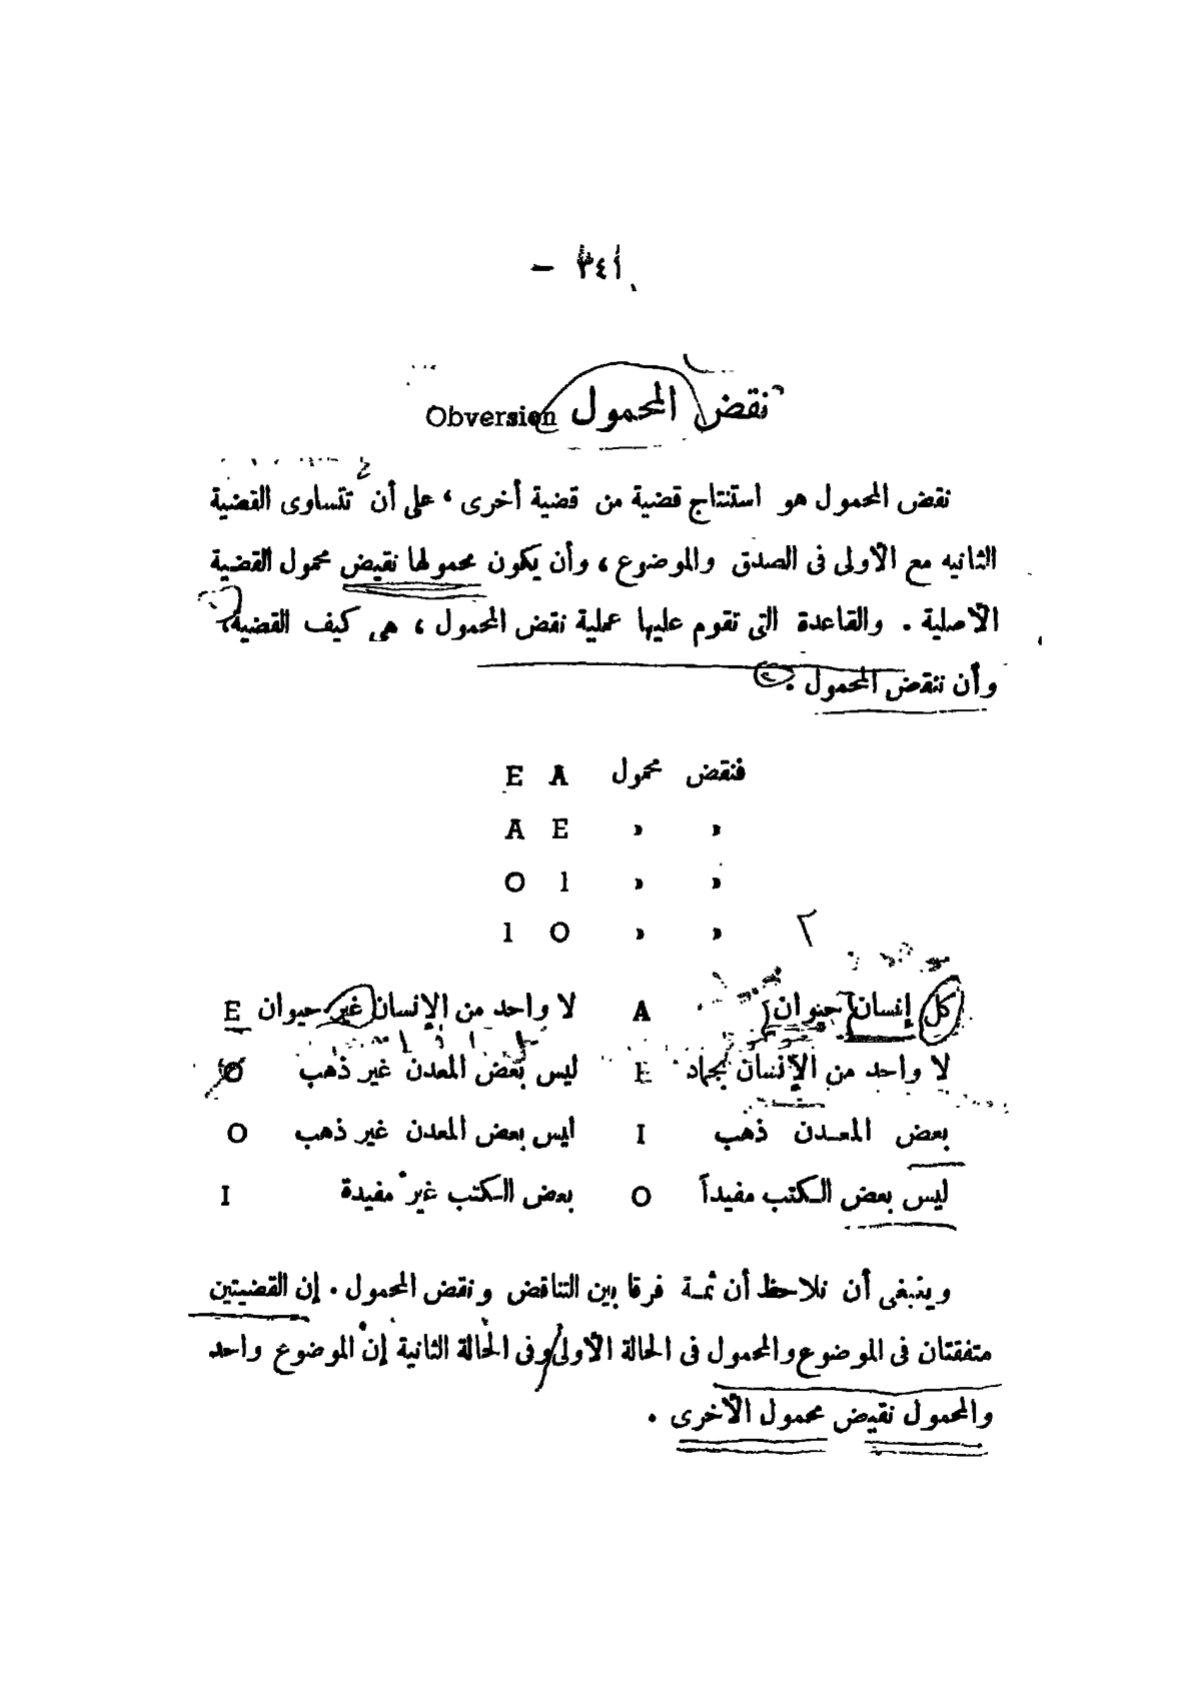 ٣٤١ —
نقض المحمول Obversion
نقض المحمول هو استنتاج قضية من قضية أخرى ، على أن تتساوى القضية
الثانيه مع الأولى فى الصدق والموضوع ، وأن يكون محمولها نقيض محمول القضية
الأصلية . والقاعدة التى تقوم عليها عملية نقض المحمول ، هى كيف القضية ،
وأن ننقض المحمول .
فنقض محمول A E
» » E A
» » I O
» » O I
كل إنسان حيوان A لا واحد من الإنسان غير حيوان E
لا واحد من الإنسان بجماد E ليس بعض المعدن غير ذهب O
بعض المعـدن ذهب I ليس بعض المعدن غير ذهب O
ليس بعض الكتب مفيداً O بعض الكتب غير مفيدة I
وينبغى أن نلاحظ أن ثمـة فرقا بين التناقض ونقض المحمول . إن القضيتين
متفقتان فى الموضوع والمحمول فى الحالة الأولى وفى الحالة الثانية إن الموضوع واحد
والمحمول نقيض محمول الأخرى .